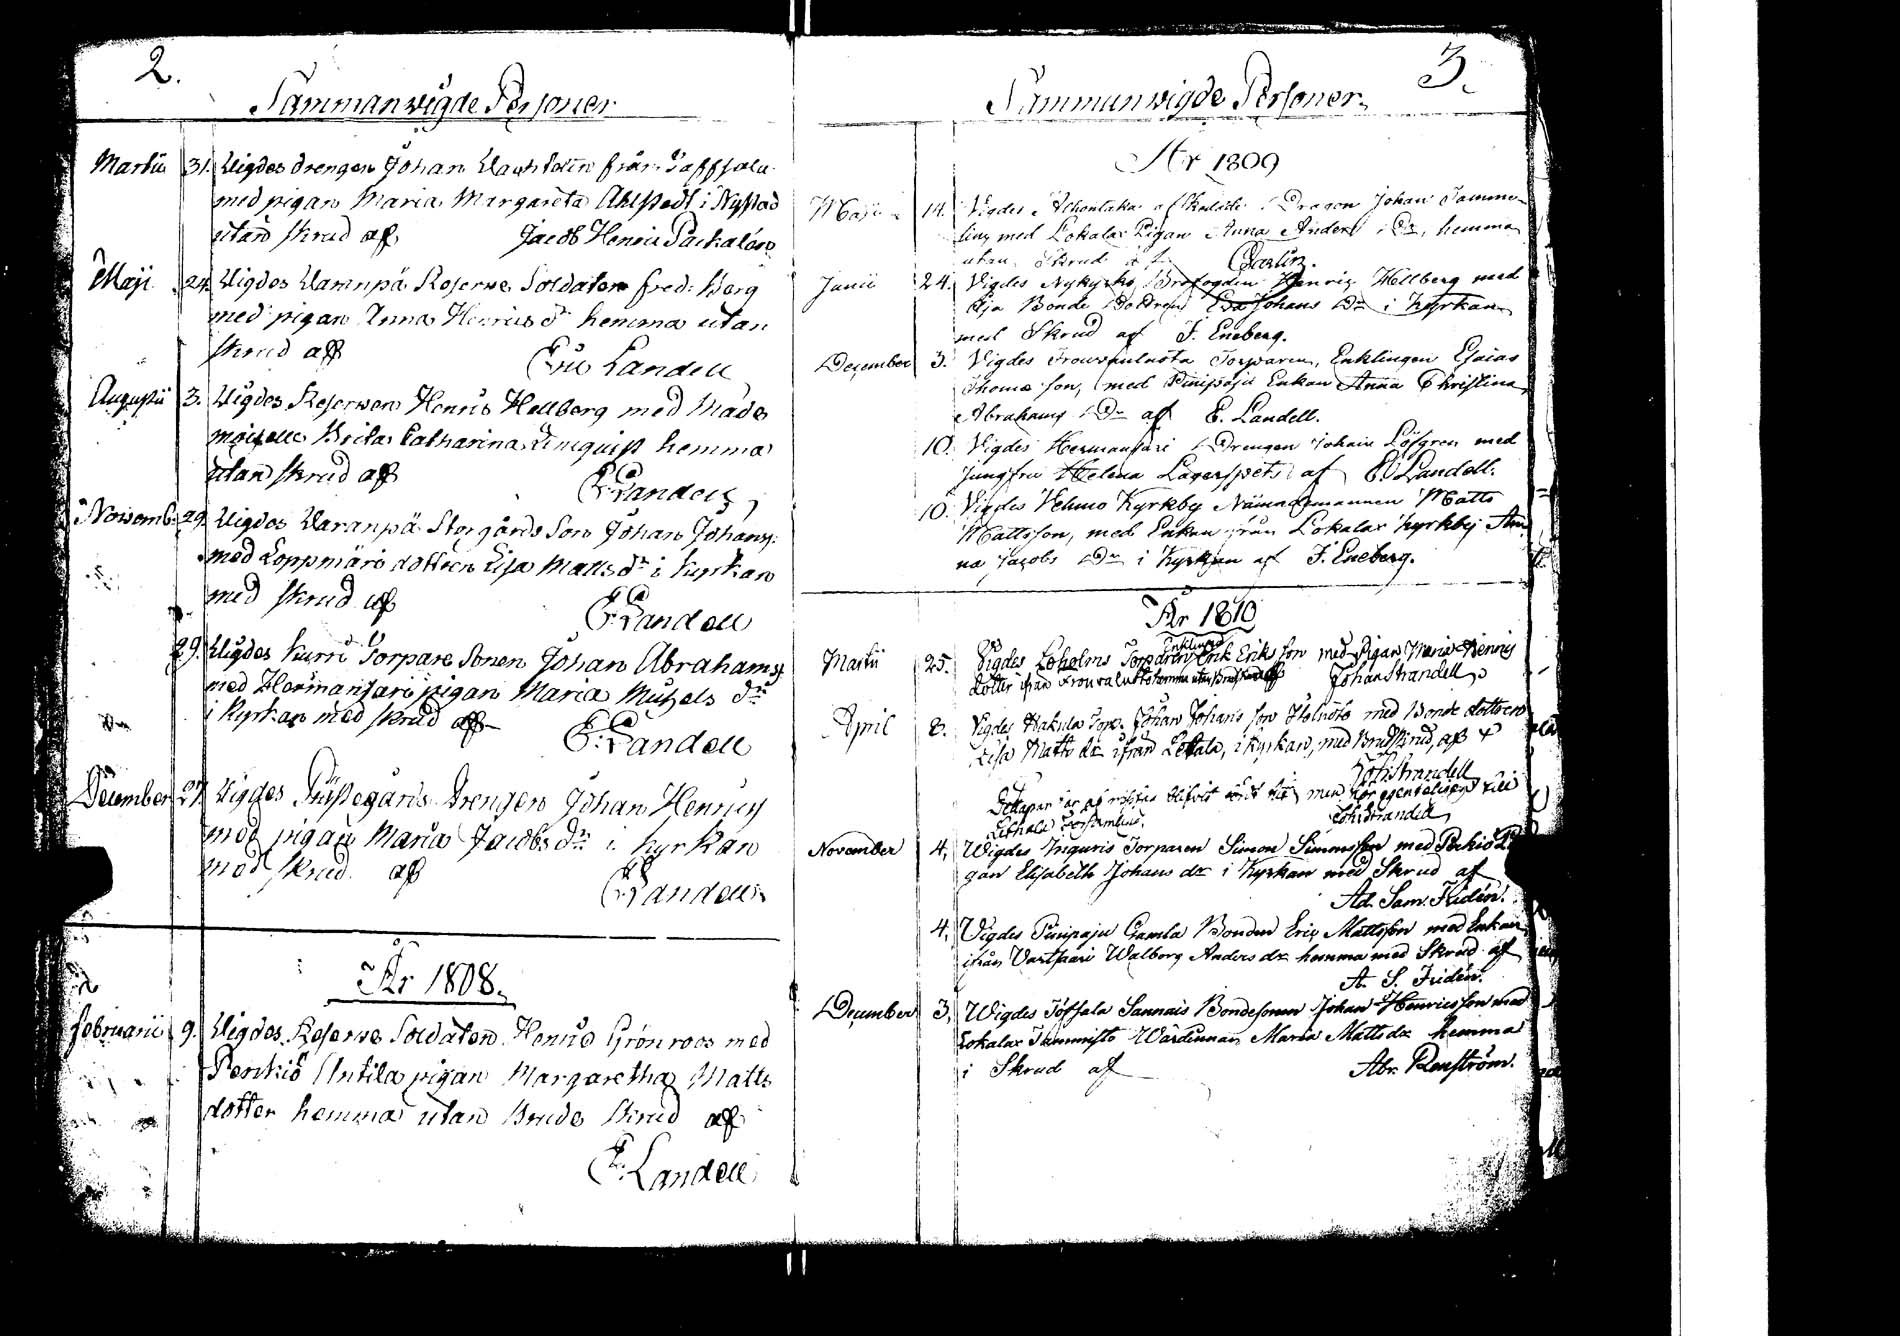 2.
Sammanwigde Personer
Martii 31. Wigdes drengen Johan från
med pigan Maria Margareta Ahlstedt i Nystad
utan skrud af Jacob Henric Packalén
Maji 24. Wigdes Reserve Soldaten Fred: Berg
med pigan Anna Henrics dr hemma utan
skrud af Eric Landell
Augusti 3. Wigdes Reserven Henric Hellberg med Made
moiselle Brita Catharina hemma
utan skrud af E. Landell
Novemb. 29. Wigdes Storgårds Son Johan Johanss:
med dotteren Lisa Matts dr i kyrkan
med skrud af E. Landell
29. Wigdes Kurri Torpare Sonen Johan Abrahamss
med Hermansari pigan Maria Michels dr
i Kyrkan med skrud af
E. Landell
December 27. Wigdes Prästegårds Drengen Johan Henricss
med pigan Maria Jacobs dr i kyrkan
med skrud af E. Landell
År 1808.
Februarii 9. Wigdes Reserve Soldaten Henric Grönroos med
Penikiö Antila pigan Margaretha Matts
dotter hemma utan Brude skrud af
E. Landell
3.
Sammanwigde Personer.
År 1809
Maji 14. Vigdes Dragon Johan
med Lokalax Pigan Anna Anders Dr, hemma
utan Skrud af
Junii 24. Vigdes Nykyrko Henric Hellberg med
Bonde Dottren Eva Johans Dr i Kyrkan
med Skrud af J. Eneberg.
December 3. Vigdes Torparen, Enklingen Esaias
Thomæ son, med Enkan Anna Christina
Abrahams Dr af E. Landell.
10. Vigdes Hermansari Drengen Johan Löfgren med
Jungfru Helena Lagerspets af E. Landell.
10. Vigdes Vehmo Kyrkby Nämndemannen Matts
Mattsson, med Enkan från Lokalax Kyrkby An
na Jacobs Dr i Kyrkan af J. Eneberg.
År 1810
Enklingen
Martii 25. Vigdes Torparen Erik Eriks son med Pigan Maria Henrics
dotter ifrån Joh Strandell
April 8. Vigdes Hakula Torp. Johan Johans son med Bonde dotteren
Lisa Matts dr ifrån i kyrkan, med Brudskrud, af
Joh: Strandell
men
Joh: Strandell
November 4, Wigdes Torparen Simon Simonsson med
gan Elisabeth Johans dr i Kyrkan med Skrud af
Ad. Sam. Fridén.
4, Vigdes Gamla Bonden Eric Mattsson med Enkan
ifrån Vartsaari Walborg Anders dr hemma med Skrud af
A. S. Fridén.
December 3, Wigdes Sannais Bondesonen Johan Henricsson med
Lokalax Wärdinnan Maria Matts dr hemma
i Skrud af Abr. Renström.